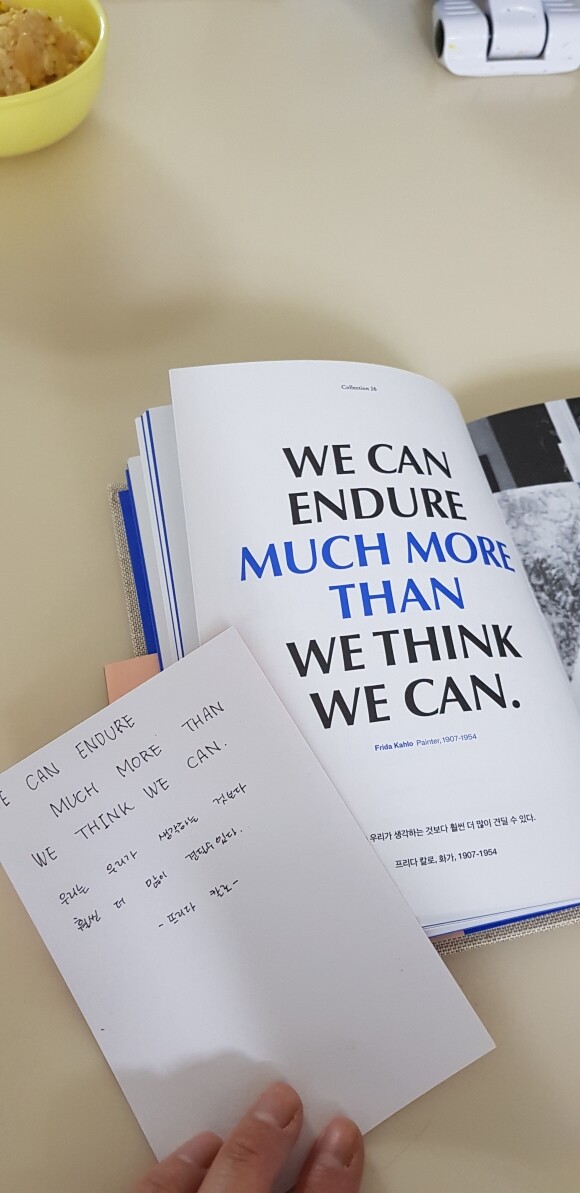 Collection 26
WE CAN
ENDURE
MUCH MORE
THAN
WE THINK
WE CAN.
Frida Kahlo Painter, 1907-1954
우리가 생각하는 것보다 훨씬 더 많이 견딜 수 있다.
프리다 칼로, 화가, 1907-1954
CAN ENDURE
MUCH MORE THAN
WE THINK WE CAN.
우리는 우리가 생각하는 것보다
훨씬 더 많이 견딜수 있다.
- 프리다 칼로 -